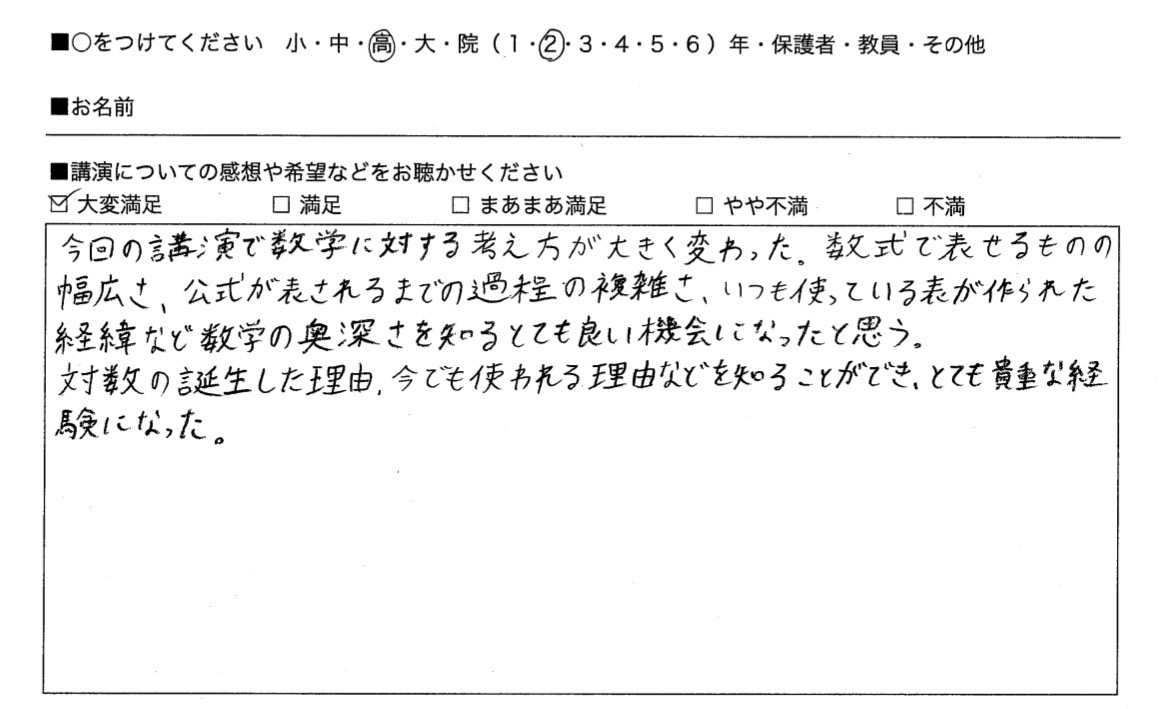 ■○をつけてください 小・中・高・大・院（1・2・3・4・5・6）年・保護者・教員・その他
■お名前
■講演についての感想や希望などをお聴かせください
☑ 大変満足 □ 満足 □ まあまあ満足 □ やや不満 □ 不満
今回の講演で数学に対する考え方が大きく変わった。数式で表せるものの
幅広さ、公式が表されるまでの過程の複雑さ、いつも使っている表が作られた
経緯など数学の奥深さを知るとても良い機会になったと思う。
対数の誕生した理由、今でも使われる理由などを知ることができ、とても貴重な経
験になった。